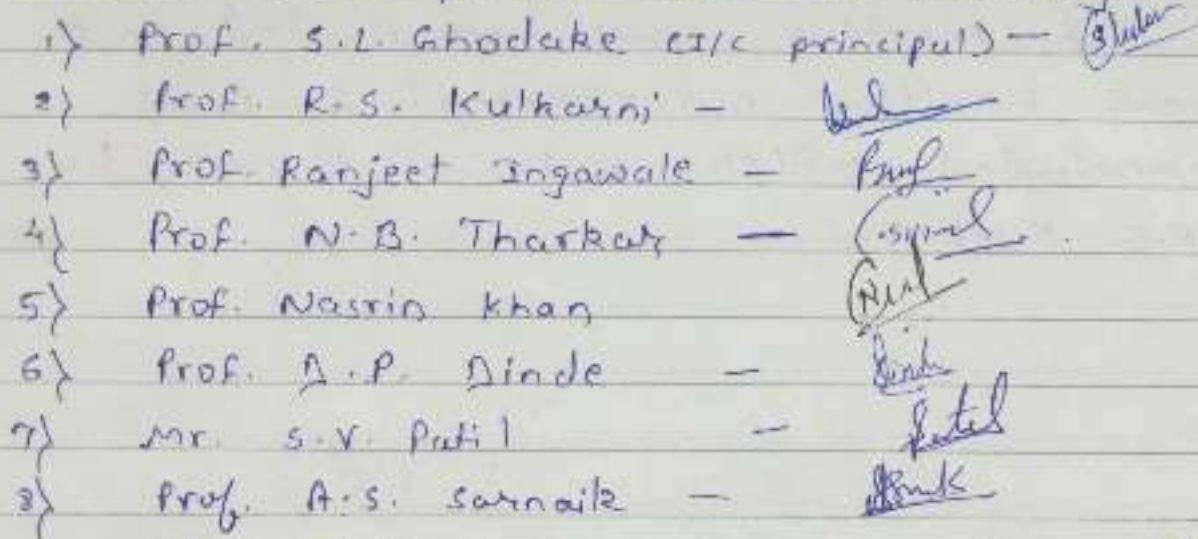 1) Prof. S.L. Ghodake (I/C principal) —
2) Prof. R.S. Kulkarni —
3) Prof. Ranjeet Ingawale —
4) Prof. N.B. Tharkar —
5) Prof. Nasrin Khan
6) Prof. D.P. Dinde —
7) Mr. S.V. Patil —
8) Prof. A.S. Sarnaik —